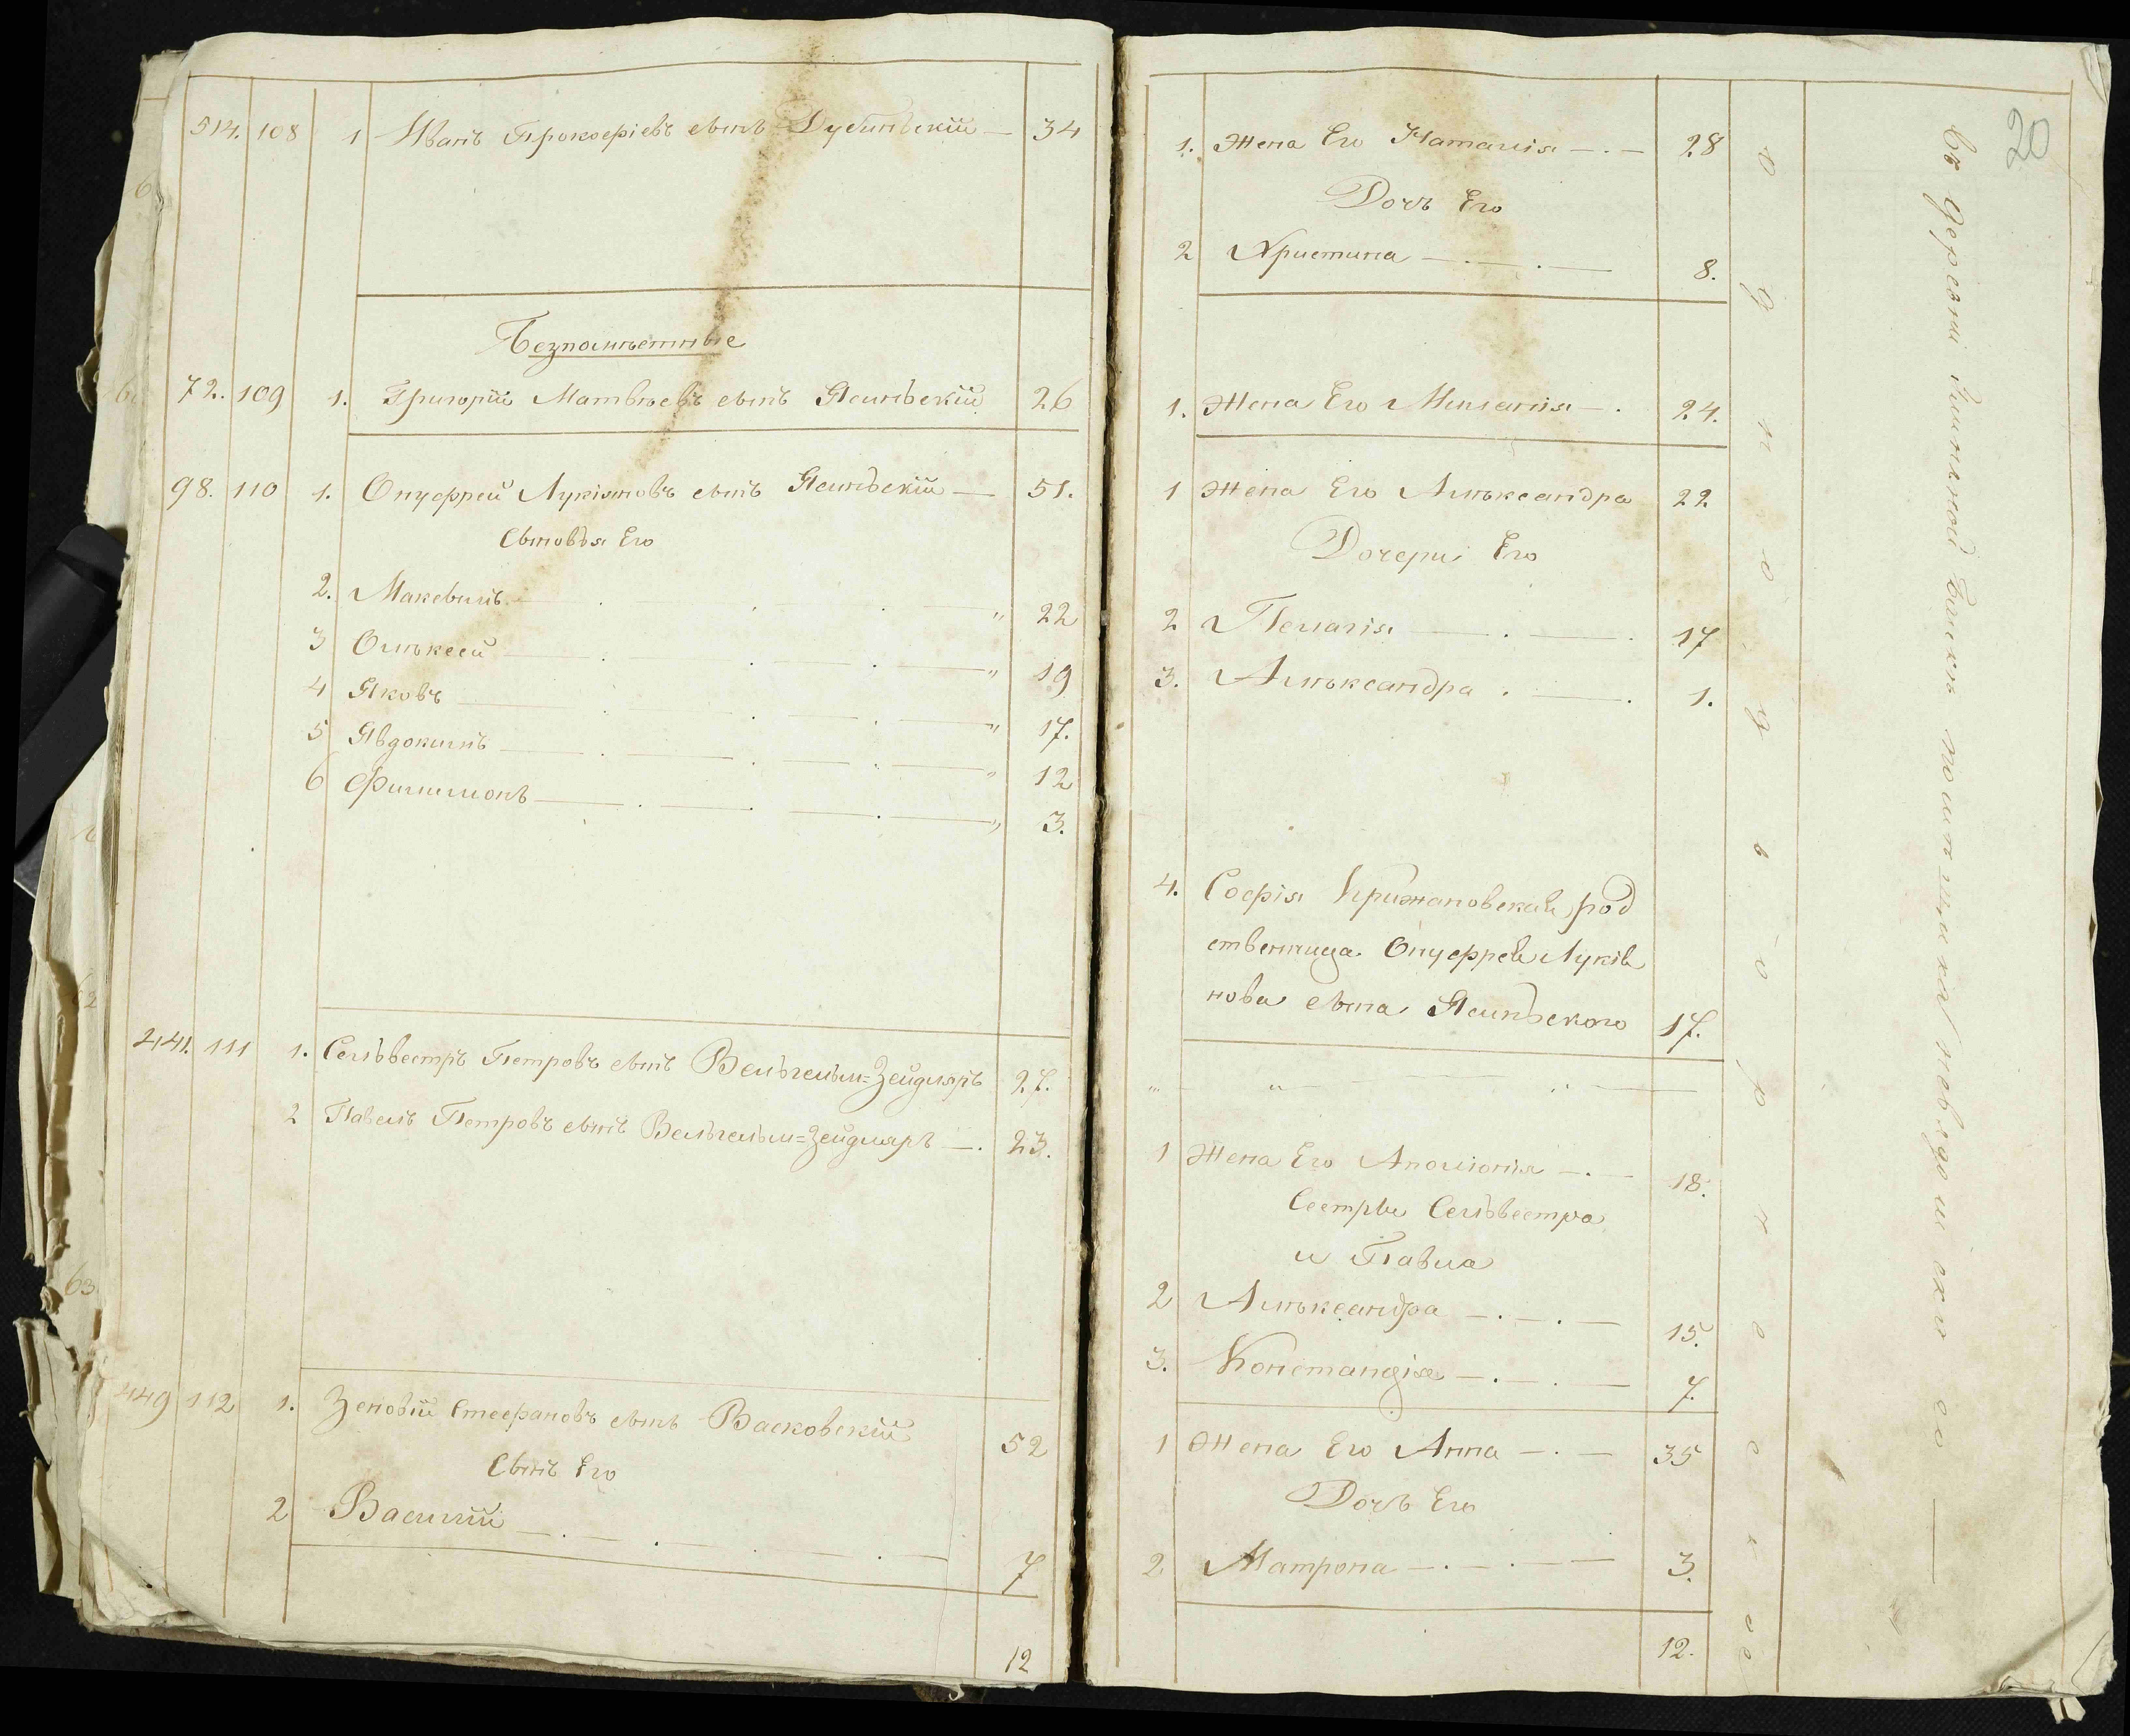 514. 108 1 Иванъ Прокофіевъ сынъ Дубинскій — 34
Безпомѣстные
72. 109 1. Григорій Матвѣевъ сынъ Ясиньскій 26
98. 110 1. Онуфрей Лукіяновъ сынъ Ясиньскій — 51.
Сыновья Его
2. Максымъ " 22
3 Олѣксей " 19
4 Яковъ " 17.
5 Явдокимъ " 12
6 Филимонъ " 3.
441. 111 1. Сельвестръ Петровъ сынъ Вельгельм=Зейдляръ 27.
2 Павелъ Петровъ сынъ Вельгельм=Зейдляръ — 23.
449 112 1. Зеновій Стефановъ сынъ Васковскій 52
Сынъ Его
2 Василій 7
12
20
1. Жена Его Наталія — 28
Дочь Его
2 Христина — 8.
1. Жена Его Миланія — 24.
1 Жена Его Алѣксандра 22.
Дочери Его
2 Пелагія — 17
3. Алѣксандра — 1.
4. Софія Крижановская род
ственница Онуфрея Лукія
нова сына Ясиньского 17.
" "
1 Жена Его Аполіонія — 18.
Сестры Сельвестра
и Павла
2 Алѣксандра — 15.
3. Констанція — 7.
1 Жена Его Анна — 35
Дочь Его
2 Матрона — 3.
12.
въ деревнѣ